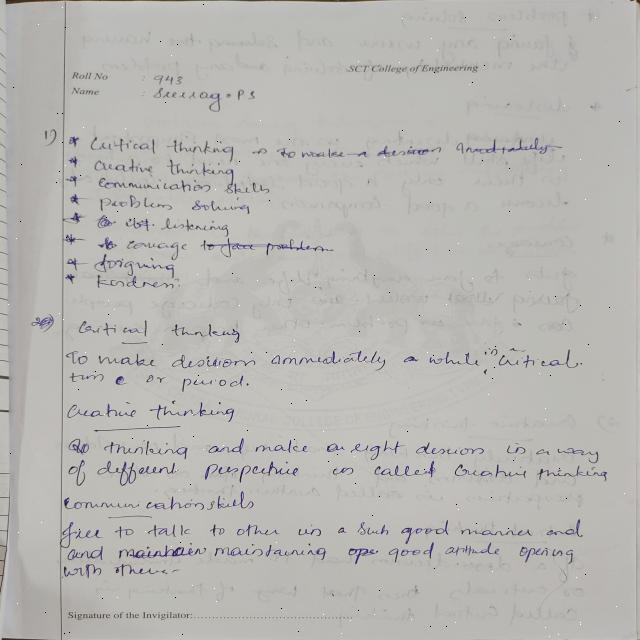 SCT College of Engineering
Roll No : 943
Name : Sreerag . P S
1) * Critical thinking → to make a decision immediately
* Creative thinking
* Communication skills
* problem solving
* listening
* courage to face problem
* forgiving
* kindness.
2) Critical thinking
To make desicion immediately a while in critical
time or period.
Creative thinking
thinking and make a right desicion in a way
of different perspective is called Creative thinking
Communication skills
free to talk to other in a such good manner and
and maintain maintaining good attitude opening
with others.
Signature of the Invigilator: